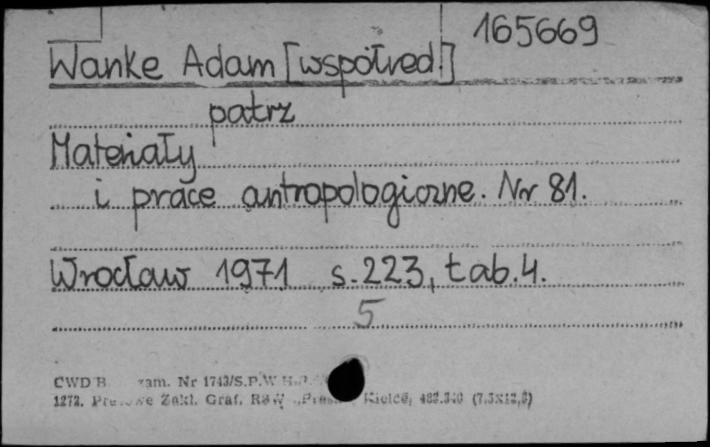 165669
Wanke Adam [współred.]
patrz
Materiały
i prace antropologiczne. Nr 81.
Wrocław 1971 s. 223, tab. 4.
5
CWD B zam. Nr 1743/S.P.W
1272. Zakl. Graf. RSW Kielce,